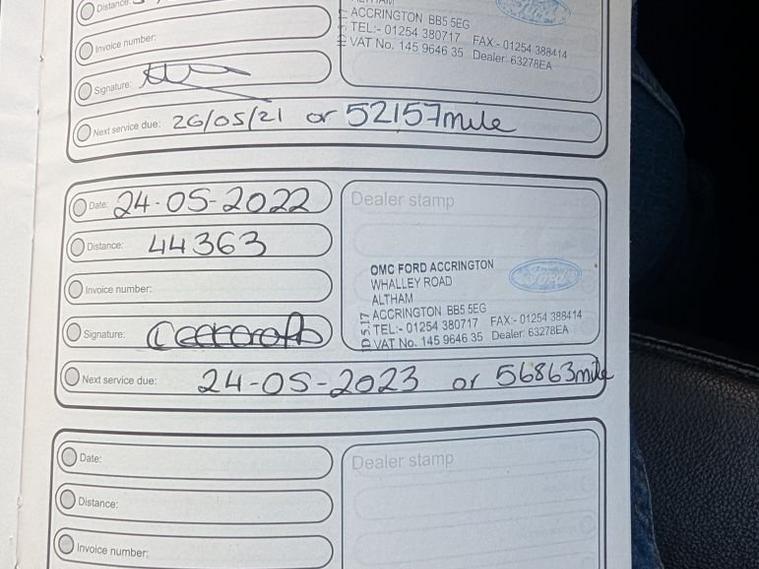 Distance:
Invoice number:
Signature:
ACCRINGTON BB5 5EG
TEL:- 01254 380717 FAX:- 01254 388414
VAT No. 145 9646 35 Dealer: 63278EA
Next service due: 26/05/21 or 52157mile
Date: 24-05-2022
Distance: 44363
Invoice number:
Signature:
Next service due: 24-05-2023 or 56863mile
Dealer stamp
OMC FORD ACCRINGTON
WHALLEY ROAD
ALTHAM
ACCRINGTON BB5 5EG
TEL:- 01254 380717 FAX:- 01254 388414
VAT No. 145 9646 35 Dealer: 63278EA
Ford
Date:
Distance:
Invoice number:
Dealer stamp